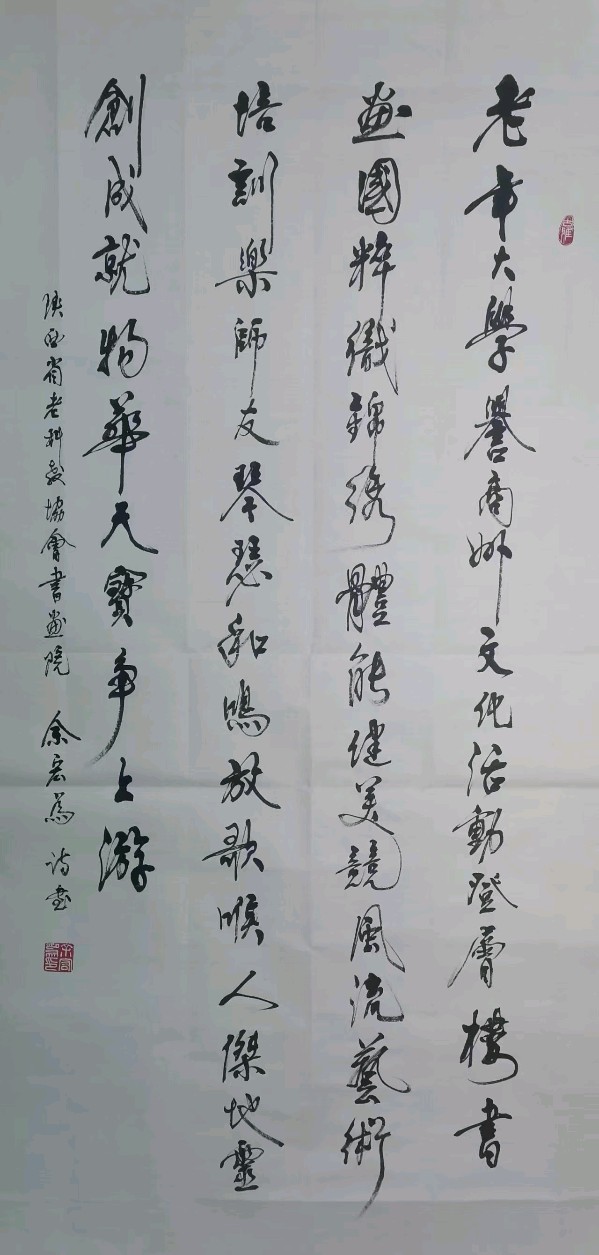 老年大學譽商州文化活動登層樓書
畫國粹織錦綉體能健美競風流藝術
培訓樂師友琴瑟和鳴放歌喉人傑地靈
創成就物華天寶爭上游
陕西省老科教協會書畫院 余宏為 詩書